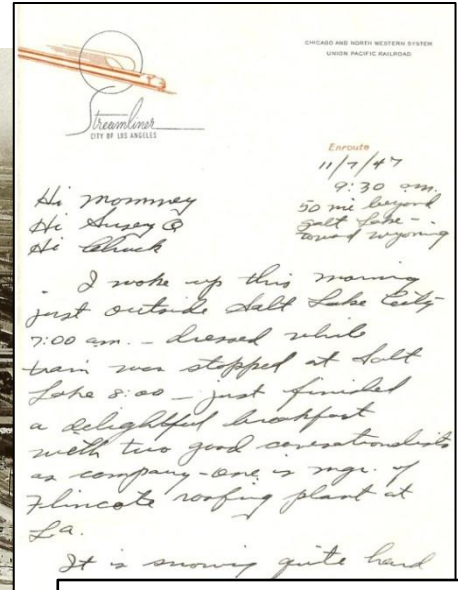 CHICAGO AND NORTH WESTERN SYSTEM
UNION PACIFIC RAILROAD
Streamliner
CITY OF LOS ANGELES
Enroute
11/7/47
9:30 am.
50 mi beyond
Salt Lake -
toward wyoming
Hi Mommey
Hi Susey Q
Hi Chuck
I woke up this morning
just outside Salt Lake City
7:00 am. - dressed while
train was stopped at Salt
Lake 8:00 - just finished
a delightful breakfast
with two good conversationalists
as company - one is mgr. of
Flincote roofing plant at
La.
It is snowing quite hard